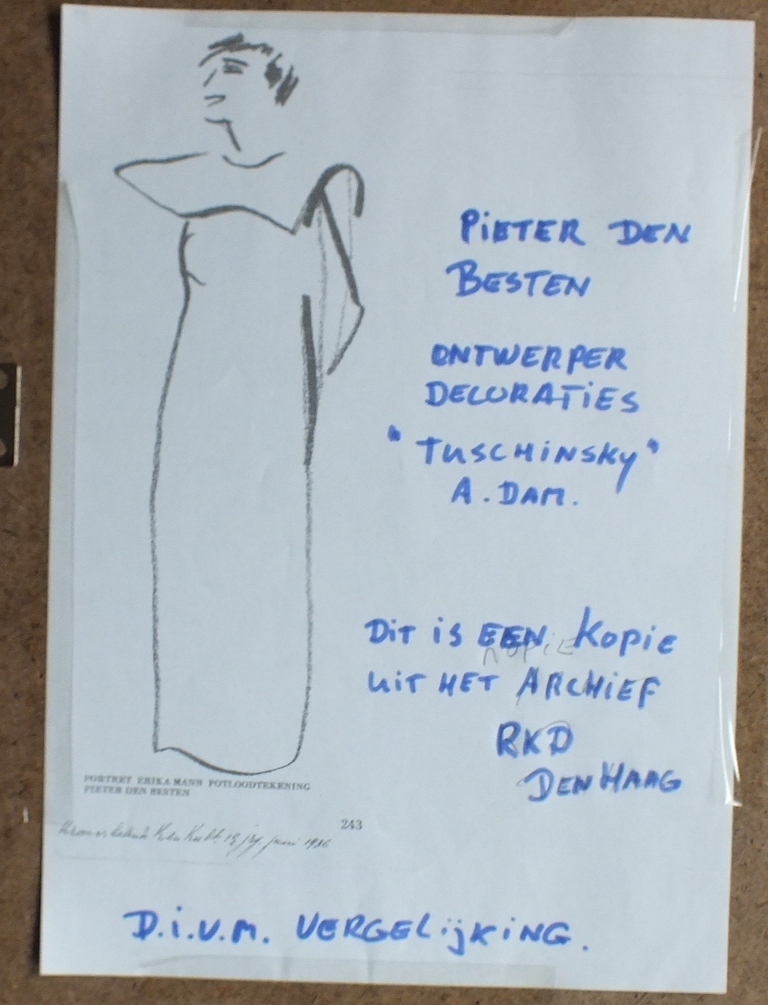 PIETER DEN
BESTEN
ONTWERPER
DECORATIES
"TUSCHINSKY"
A.DAM.
DIT IS EEN KOPIE
KOPIE
UIT HET ARCHIEF
RKD
DEN HAAG
PORTRET ERIKA MANN POTLOODTEKENING
PIETER DEN BESTEN
243
juni 1936
D.I.V.M. VERGELIJKING.